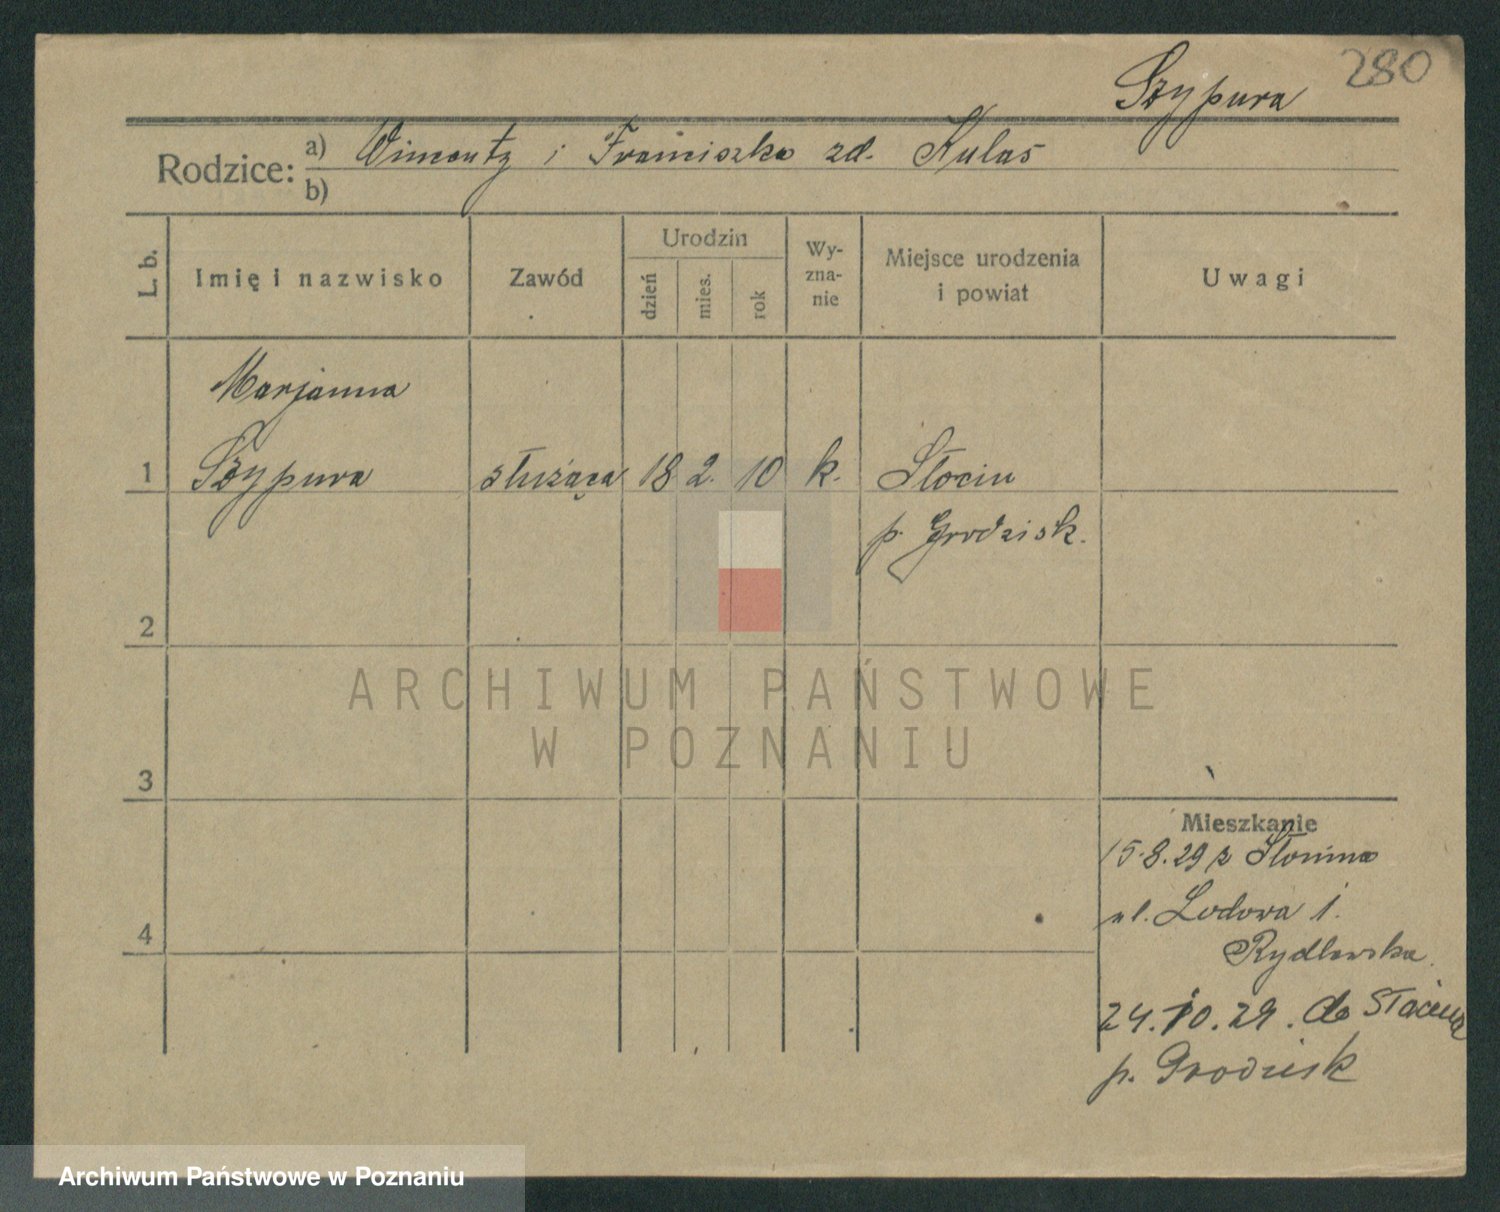 280
Szypura
Rodzice: a) Wincenty i Franciszka zd. Kulas
b)
L. b.
Imię i nazwisko
Zawód
Urodzin
dzień
mies.
rok
Wy-
zna-
nie
Miejsce urodzenia
i powiat
Uwagi
Marjanna
1 Szypura służąca 18 2. 10 k. Słocin
p. Grodzisk.
2
ARCHIWUM PAŃSTWOWE
W POZNANIU
3
Mieszkanie
15.8.29 z
ul. Lodowa 1.
Rydlewska
4
24.10.29. do
p. Grodzisk
Archiwum Państwowe w Poznaniu